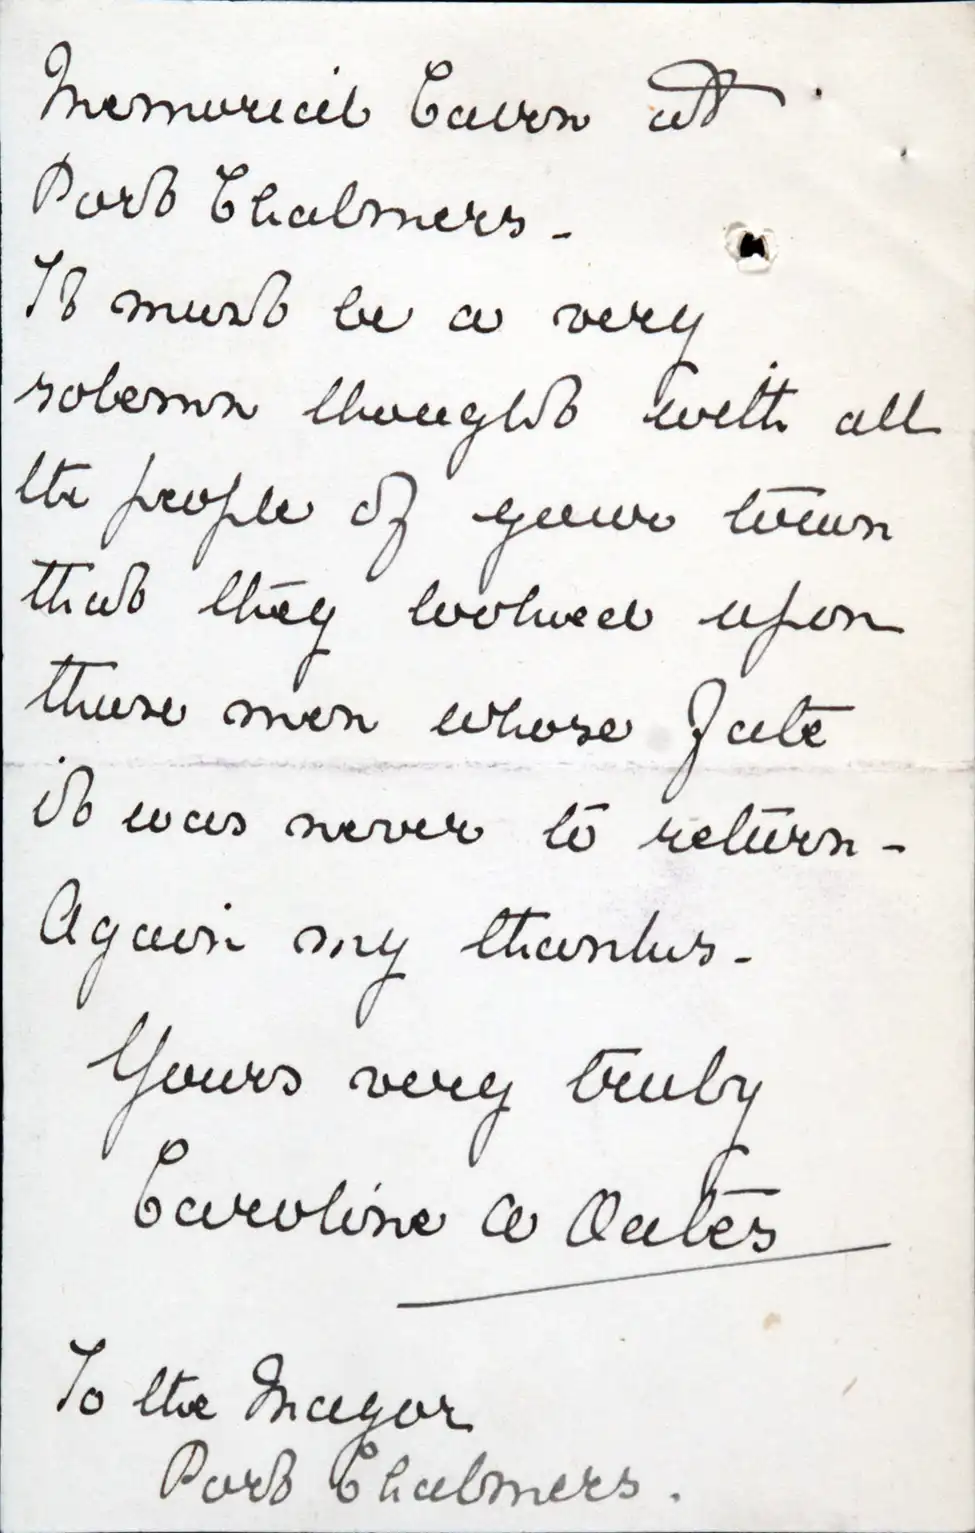 Memorial Cairn at
Port Chalmers -
It must be a very
solemn thought with all
the people of your town
that they looked upon
those men whose fate
it was never to return -
Again my thanks -
Yours very truly
Caroline A Oates
To the Mayor
Port Chalmers.